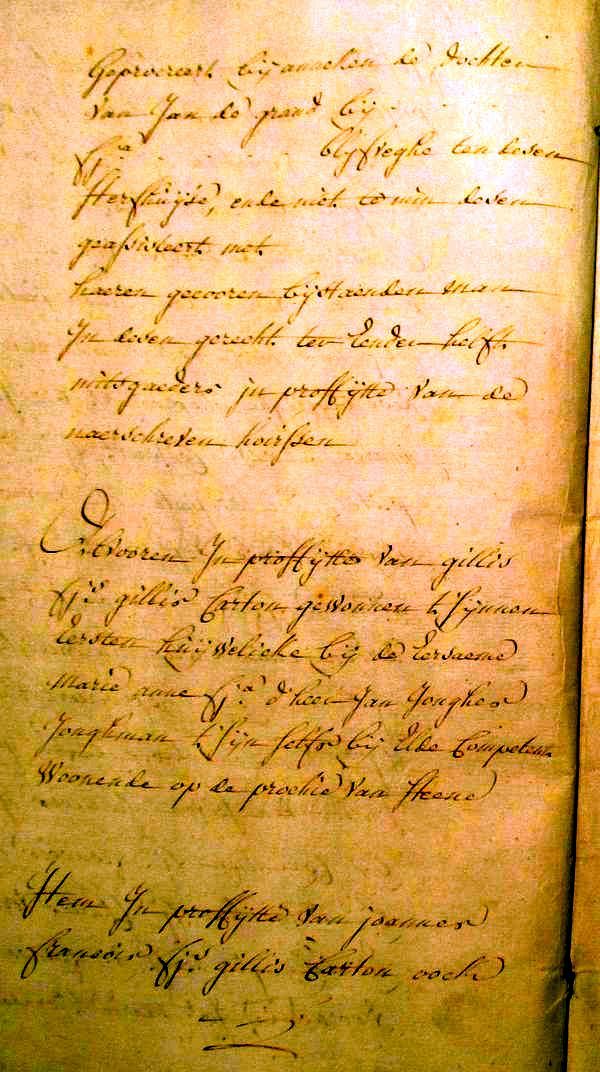 Geprocreert bij anneken de dochter
van Jan de grand bij
fa. blijfveghe ten desen
sterfhuijse, ende niet te min desen
geassisteert met
haeren gecooren bijstaenden man
In desen gerecht ter eender helft
mitsgaeders jn proffijtte van de
naerschreven hoirssen
Alvooren In proffijtte van gillis
fs. gillis Carton gewonnen t'sijnnen
eersten huijwelicke bij de eersaeme
marie anne fa. d'heer Jan Jonghes
Jonghman t'sijn selfs bij Ude Competent
woonende op de prochie van steene
Item In proffijtte van joannes
francois fs. gillis Carton, oock